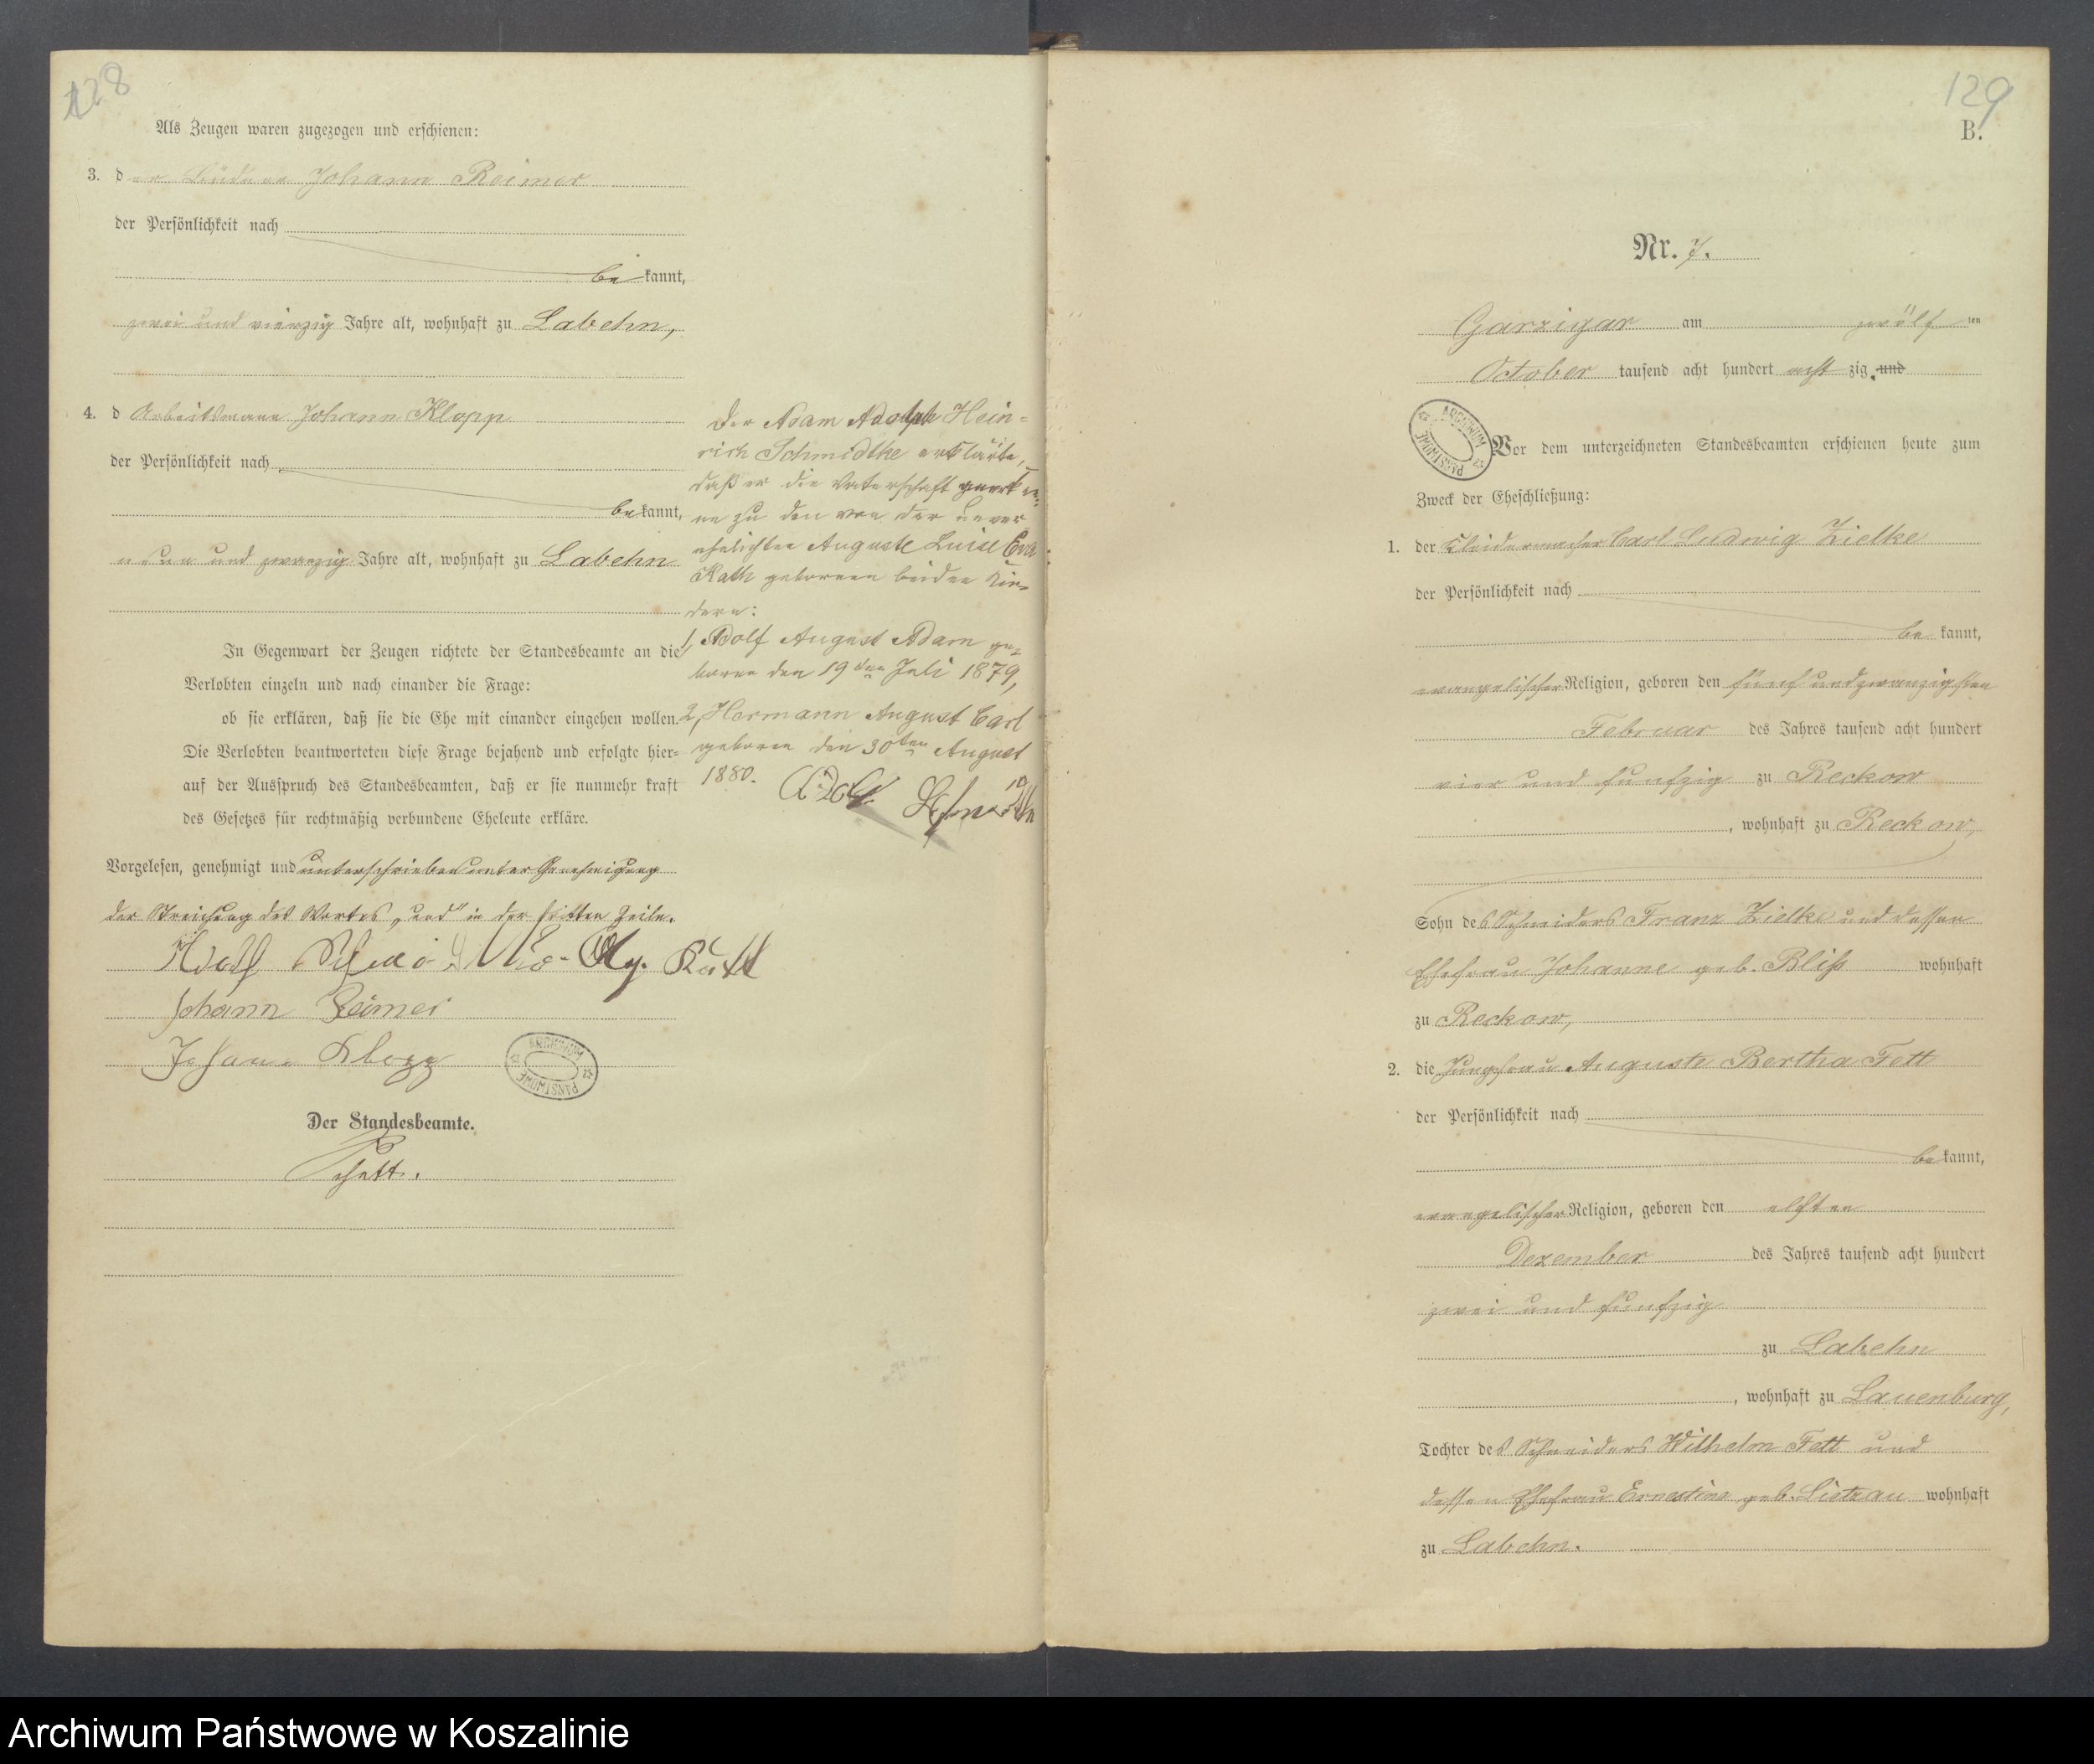 128
Als Zeugen waren zugezogen und erschienen:
3. der Büdner Johann Reimer
der Persönlichkeit nach
be kannt,
zwei und vierzig Jahre alt, wohnhaft zu Labehn,
4. d Arbeitsmann Johann Klopp
der Persönlichkeit nach
be kannt,
neun und zwanzig Jahre alt, wohnhaft zu Labehn
In Gegenwart der Zeugen richtete der Standesbeamte an die
Verlobten einzeln und nach einander die Frage:
ob sie erklären, daß sie die Ehe mit einander eingehen wollen.
Die Verlobten beantworteten diese Frage bejahend und erfolgte hier-
auf der Ausspruch des Standesbeamten, daß er sie nunmehr kraft
des Gesetzes für rechtmäßig verbundene Eheleute erkläre.
Vorgelesen, genehmigt und unterschrieben unter Genehmigung
der Streichung des Wortes „und" in der dritten Zeile.
Adolf Schmidtke Aug. Kath
Johann Reimer
Johann Klopp
ARCHIWUM PAŃSTWOWE
Der Standesbeamte.
Der Adam Adolph Hein-
rich Schmidtke erklärte,
daß er die Vaterschaft anerken-
ne zu den von der unver
ehelichten Auguste Luise Eva
Kath geborenen beiden Kin-
dern:
1, Adolf August Adam ge-
boren den 19ten Juli 1879,
2, Hermann August Carl
geboren den 30ten August
1880.
Adolf Schmidtke
129
B.
Nr. 7.
Garzigar am zwölf ten
October tausend acht hundert acht zig. und
ARCHIWUM PAŃSTWOWE
Vor dem unterzeichneten Standesbeamten erschienen heute zum
Zweck der Eheschließung:
1. der Kleidermacher Carl Ludwig Zielke
der Persönlichkeit nach
be kannt,
evangelischer Religion, geboren den fünf und zwanzigsten
Februar des Jahres tausend acht hundert
vier und funfzig zu Reckow
, wohnhaft zu Reckow,
Sohn des Schneiders Franz Zielke und dessen
Ehefrau Johanne geb. Bliß wohnhaft
zu Reckow,
2. die Jungfrau Auguste Bertha Fett
der Persönlichkeit nach
be kannt,
evangelischer Religion, geboren den elften
Dezember des Jahres tausend acht hundert
zwei und funfzig
zu Labehn
, wohnhaft zu Lauenburg,
Tochter des Schneiders Wilhelm Fett und
dessen Ehefrau Ernestine geb. Lietzau wohnhaft
zu Labehn.
Archiwum Państwowe w Koszalinie